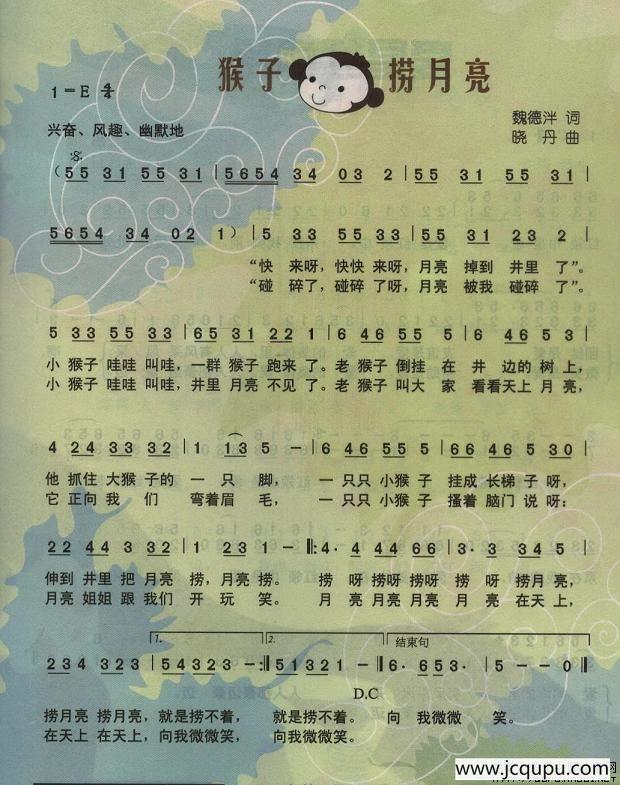 猴子捞月亮
1=E 4/4
魏德泮 词
兴奋、风趣、幽默地
晓丹 曲
(55 31 55 31 | 5654 34 03 2 | 55 31 55 31 |
5654 34 02 1) | 5 33 55 33 | 55 31 23 2 |
“快 来呀，快快 来呀，月亮 掉到 井里 了”。
“碰 碎了，碰碎 了呀，月亮 被我 碰碎 了”。
5 33 55 33 | 65 31 22 1 | 6 46 55 5 | 6 46 53 |
小 猴子 哇哇 叫哇，一群 猴子 跑来 了。老 猴子 倒挂 在 井 边的 树上，
小 猴子 哇哇 叫哇，井里 月亮 不见 了。老 猴子 叫大 家 看看天上 月亮，
4 24 33 32 | 1 13 5 — | 6 46 55 5 | 66 46 5 30 |
他 抓住 大猴 子的 一 只 脚， 一 只只 小猴 子 挂成 长梯 子 呀，
它 正向 我 们 弯着 眉 毛， 一 只只 小猴 子 搔着 脑门 说 呀：
22 44 3 32 | 1 23 1 — ‖: 4· 44 66 | 3· 3 34 5 |
伸到 井里 把 月亮 捞，月亮 捞。 捞 呀 捞呀 捞呀 捞 呀 捞月亮，
月亮 姐姐 跟 我们 开 玩 笑。 月 亮 月亮 月亮 月 亮 在天 上，
1. 2. 结束句
234 323 | 51323 — :‖ 51321 — ‖ 6· 653· | 5 — — 0 ‖
D.C
捞月亮 捞月亮，就是 捞不着， 就是 捞不着。 向 我微微 笑。
在天上 在天上，向我 微微笑， 向我 微微笑。
www.jcqupu.com